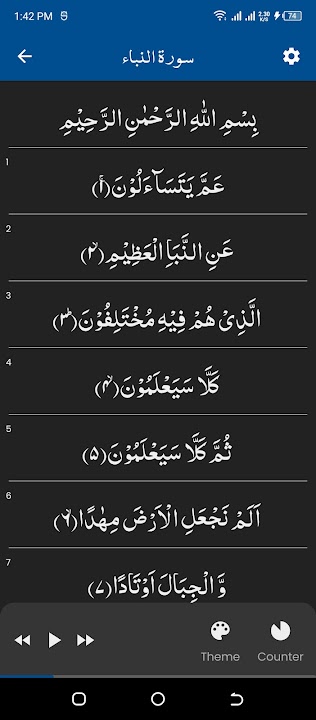 1:42 PM 2.30 K/S 74
سورة النباء
بِسْمِ اللهِ الرَّحْمٰنِ الرَّحِيْمِ
1
عَمَّ يَتَسَآءَلُوْنَ﴿۱﴾
2
عَنِ النَّبَاِ الْعَظِيْمِ﴿۲﴾
3
الَّذِىْ هُمْ فِيْهِ مُخْتَلِفُوْنَ﴿۳﴾
4
كَلَّا سَيَعْلَمُوْنَ﴿۴﴾
5
ثُمَّ كَلَّا سَيَعْلَمُوْنَ﴿۵﴾
6
اَلَمْ نَجْعَلِ الْاَرْضَ مِهٰدًا﴿۶﴾
7
وَّ الْجِبَالَ اَوْتَادًا﴿۷﴾
Theme Counter